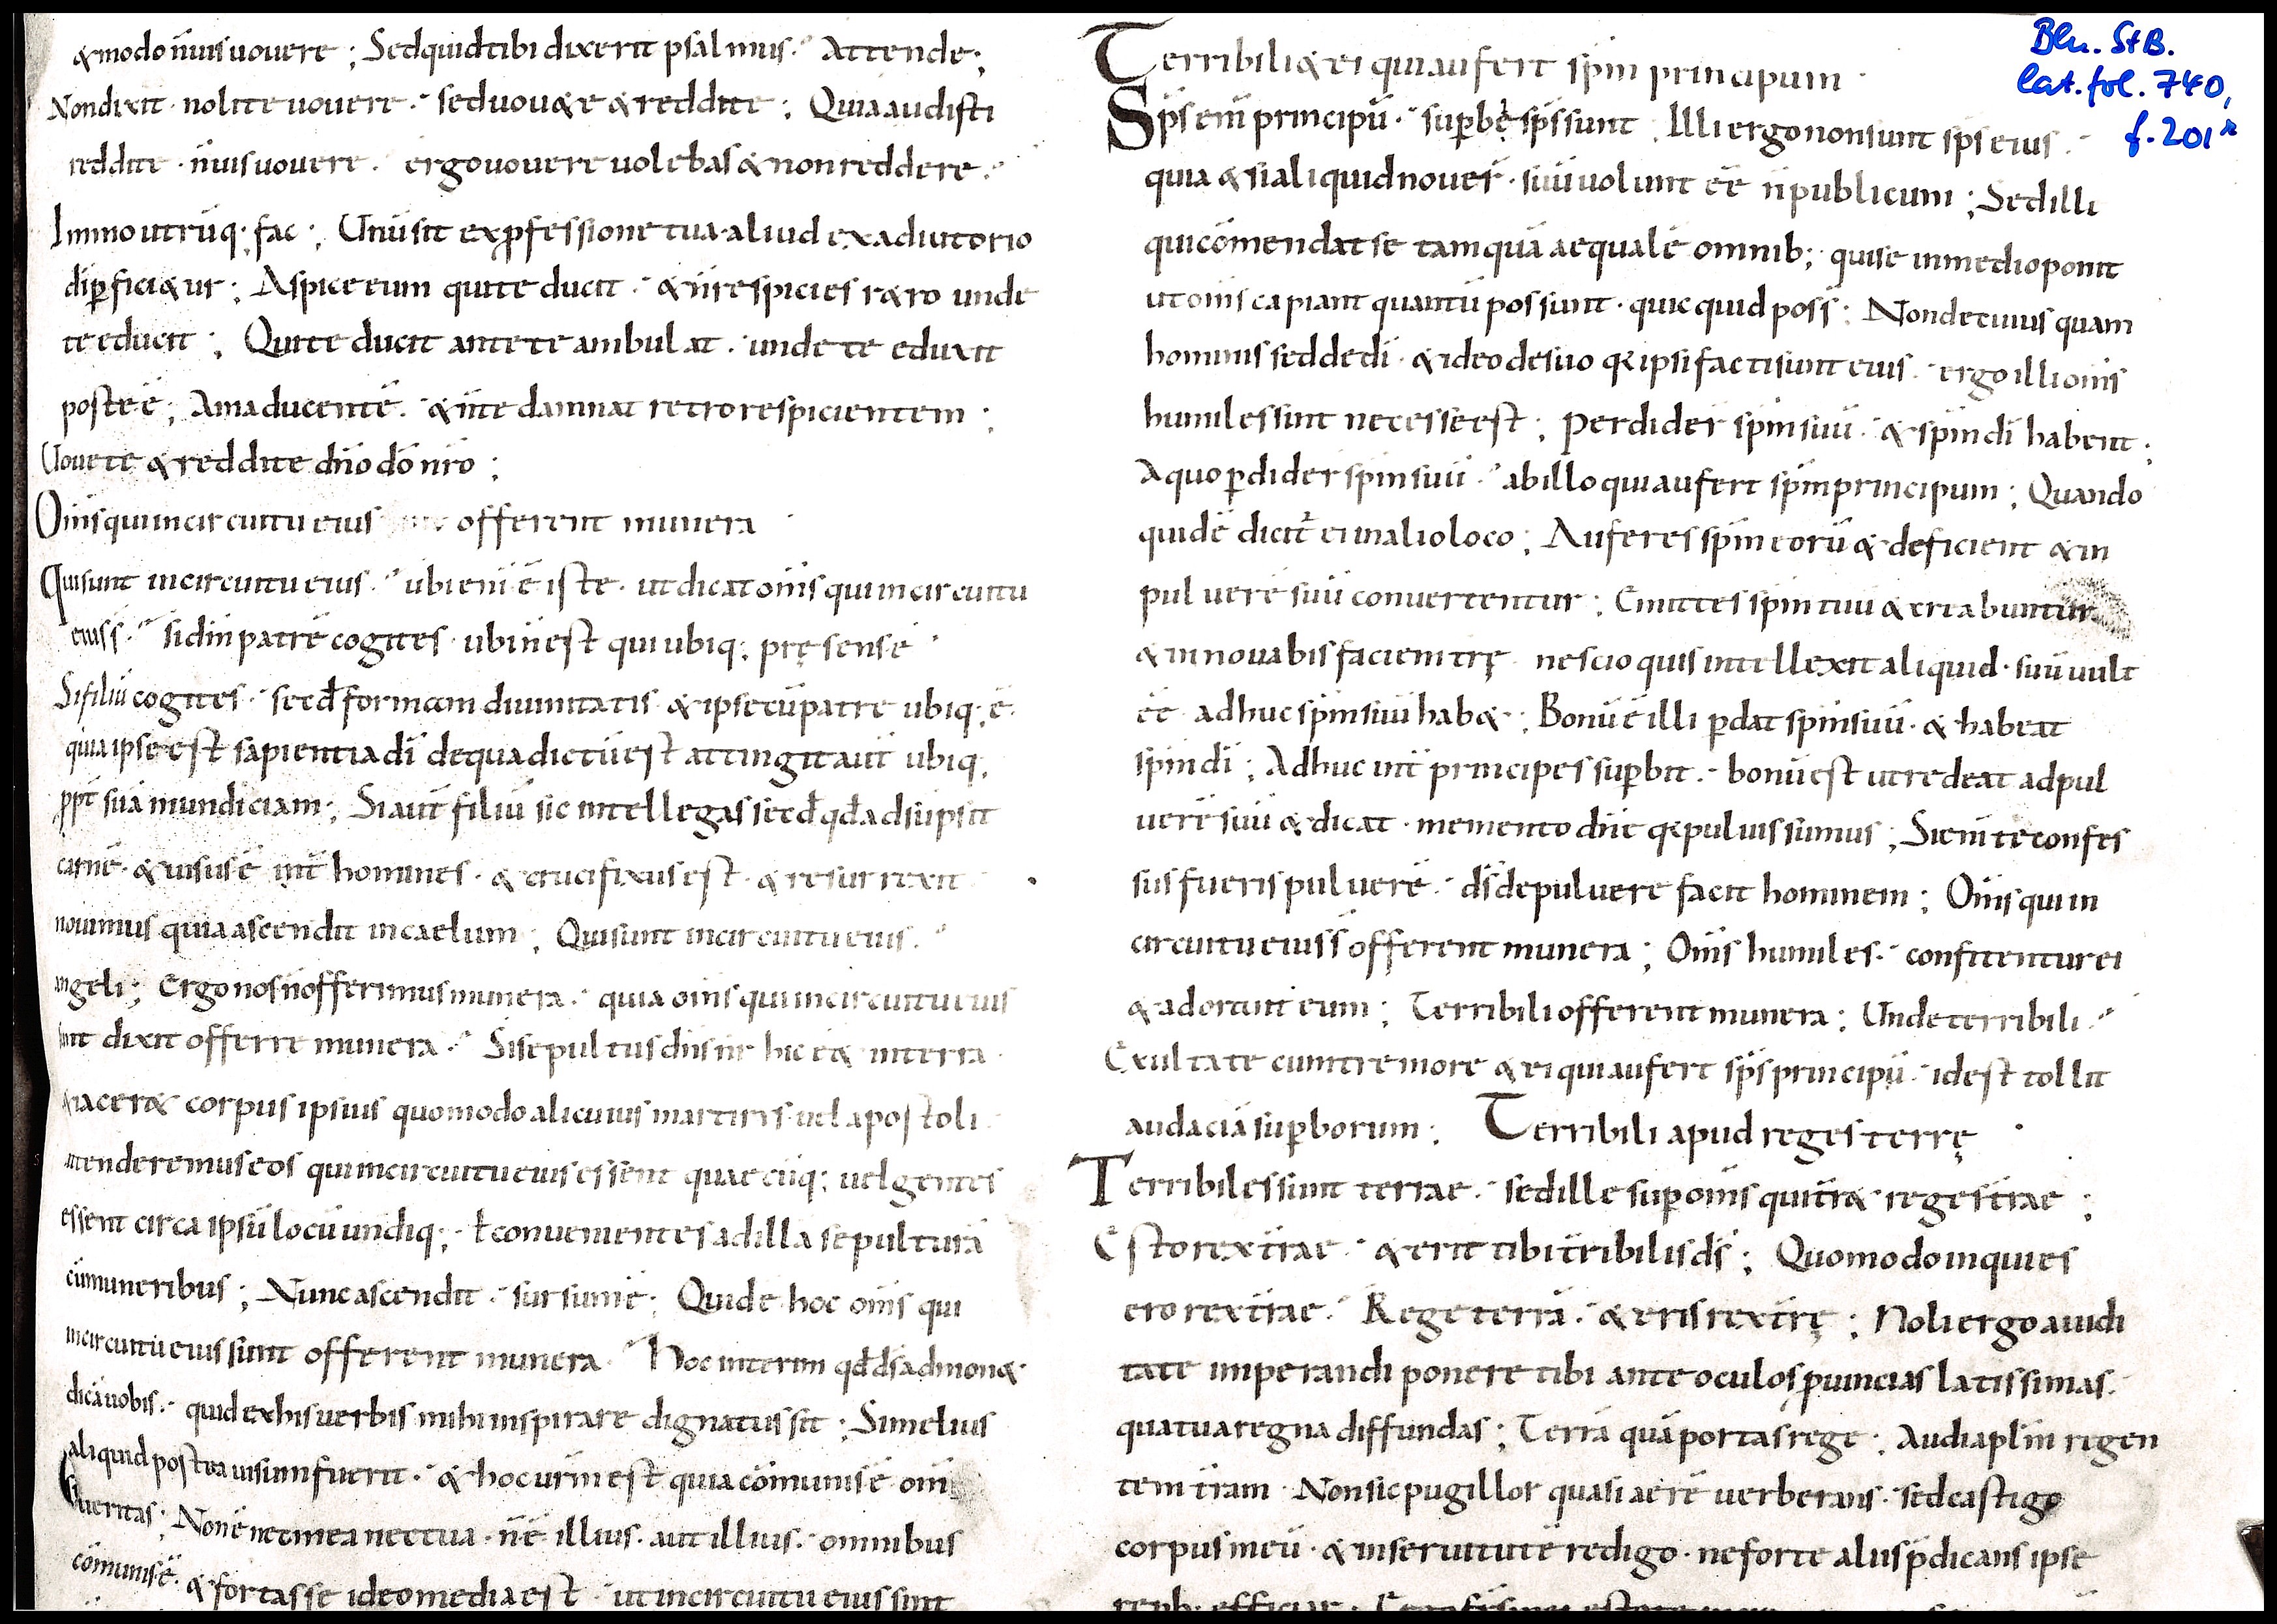 &modo n̄ uis uouere ; Sed quid tibi dixerit psalmus · Attende ;
Non dixit · nolite uouere · sed uou&e & reddite ; Quia audisti
reddite · n̄ uis uouere · ergo uouere uolebas & non reddere ·
Immo utrūq; fac ; Unū sit ex p̱fessione tua · aliud ex adiutorio
dī p̱fici&ur ; Aspice eum qui te ducit · & n̄ respicies r&ro unde
te educit ; Qui te ducit ante te ambulat · unde te eduxit
post te ē ; Ama ducentē · & n̄ te damnat retro respicientem ;
Uouete & reddite dn̄o dō nr̄o ;
Om̄s qui in circuitu eius offerent munera
Qui sunt in circuitu eius · ubi eni ē iste · ut dicat om̄s qui in circuitu
eius s̄ · si dm̄ patrē cogites · ubi n̄ est qui ubiq; pręsens ē
Si filiū cogites · secd̄ formam diuinitatis & ipse cū patre ubiq; ē
quia ipse est sapientia dī de qua dictū est attingit aut̄ ubiq;
ppt̄ suā mundiciam ; Si aut̄ filiū sic intellegas secd̄ qd̄ adsūpsit
carnē · & uisus ē int̄ homines · & crucifixus est · & resurrexit
nouimus quia ascendit in caelum ; Qui sunt in circuitu eius ·
angeli ; Ergo nos n̄ offerimus munera · quia om̄s qui in circuitu eius
sunt dixit offerre munera · Si sepultus dn̄s nr̄ hic e& in terra
& iacer& corpus ipsius quomodo alicuius martiris · uel apostoli
intenderemus eos qui in circuitu eius essent quaecūq; uel gentes
essent circa ipsū locū undiq; · ł conuenientes ad illa sepulturā
cū muneribus ; Nunc ascendit · sursum ē ; Quid e hoc om̄s qui
in circuitu eius sunt offerent munera · Hoc interim qd̄ d̄s admon&
dicā uobis · quid ex his uerbis mihi inspirare dignatus sit ; Si melius
aliquid postea uisum fuerit · & hoc ur̄m est quia cōmunis ē om̄i
ueritas ; Non ē nec mea nec tua · n̄ ē illius · aut illius · omnibus
cōmunis ē · & fortasse ideo media est · ut in circuitu eius sint
Terribili & ei qui aufert spm̄ principum
Sp̄s enī principū · sup̱bę sp̄s sunt ; Illi ergo non sunt sp̄s eius ·
quia & si aliquid nouer̄ · suū uolunt eē n̄ publicum ; Sed illi
qui cōmendat se tamquā aequalē omnib; · qui se in medio ponit
ut om̄s capiant quantū possunt · quicquid poss̄ ; Non de cuiusquam
hominis sed de dī · & ideo de suo q& ipsi facti sunt eius · ergo illi om̄s
humiles sint necesse est ; Perdider̄ spm̄ suū · & spm̄ dī habent ;
A quo p̱dider̄ spm̄ suū · ab illo qui aufert spm̄ principum ; Quando
quidē dicit̄ ei in alio loco ; Auferes spm̄ eorū & deficient & in
puluerē suū conuertentur ; Emittes spm̄ tuū & cr̄iabuntur
& innouabis faciem tr̄ę nescio quis intellexit aliquid · suū uult
eē adhuc spm̄ suū hab& ; Bonū ē illi p̱dat spm̄ suū · & habeat
spm̄ dī ; Adhuc int̄ principes sup̱bit · bonū est ut redeat ad pul
uerē suū & dicat · memento dn̄e q& puluis sumus ; Si enī te confes
sus fueris puluerē · d̄s de puluere facit hominem ; Om̄s qui in
circuitu eius s̄ offerent munera ; Om̄s humiles · confitentur ei
& adorant eum ; Terribili offerent munera ; Unde terribili ·
Exultate cum tremore & ei qui aufert sp̄s principū · id est tollit
audaciā sup̱borum ; Terribili apud reges terrę
Terribiles sunt terrae · sed ille sup̱ om̄s qui tr̄r& reges tr̄rae ;
Esto rex tr̄rae · & erit tibi tr̄ribilis d̄s ; Quomodo inquies
ero rex tr̄rae · Rege terrā · & eris rex tr̄rę ; Noli ergo auidi
tate imperandi ponere tibi ante oculos p̱uincias latissimas ·
qua tua regna diffundas ; Terrā quā portas rege ; Audi aplm̄ regen
tem tr̄ram · Non sic pugillor quasi aerē uerberans · sed castigo
corpus meū · & in seruitutē redigo · ne forte aliis p̄dicans ipse
Bln. StB.
lat. fol. 740,
f. 201r